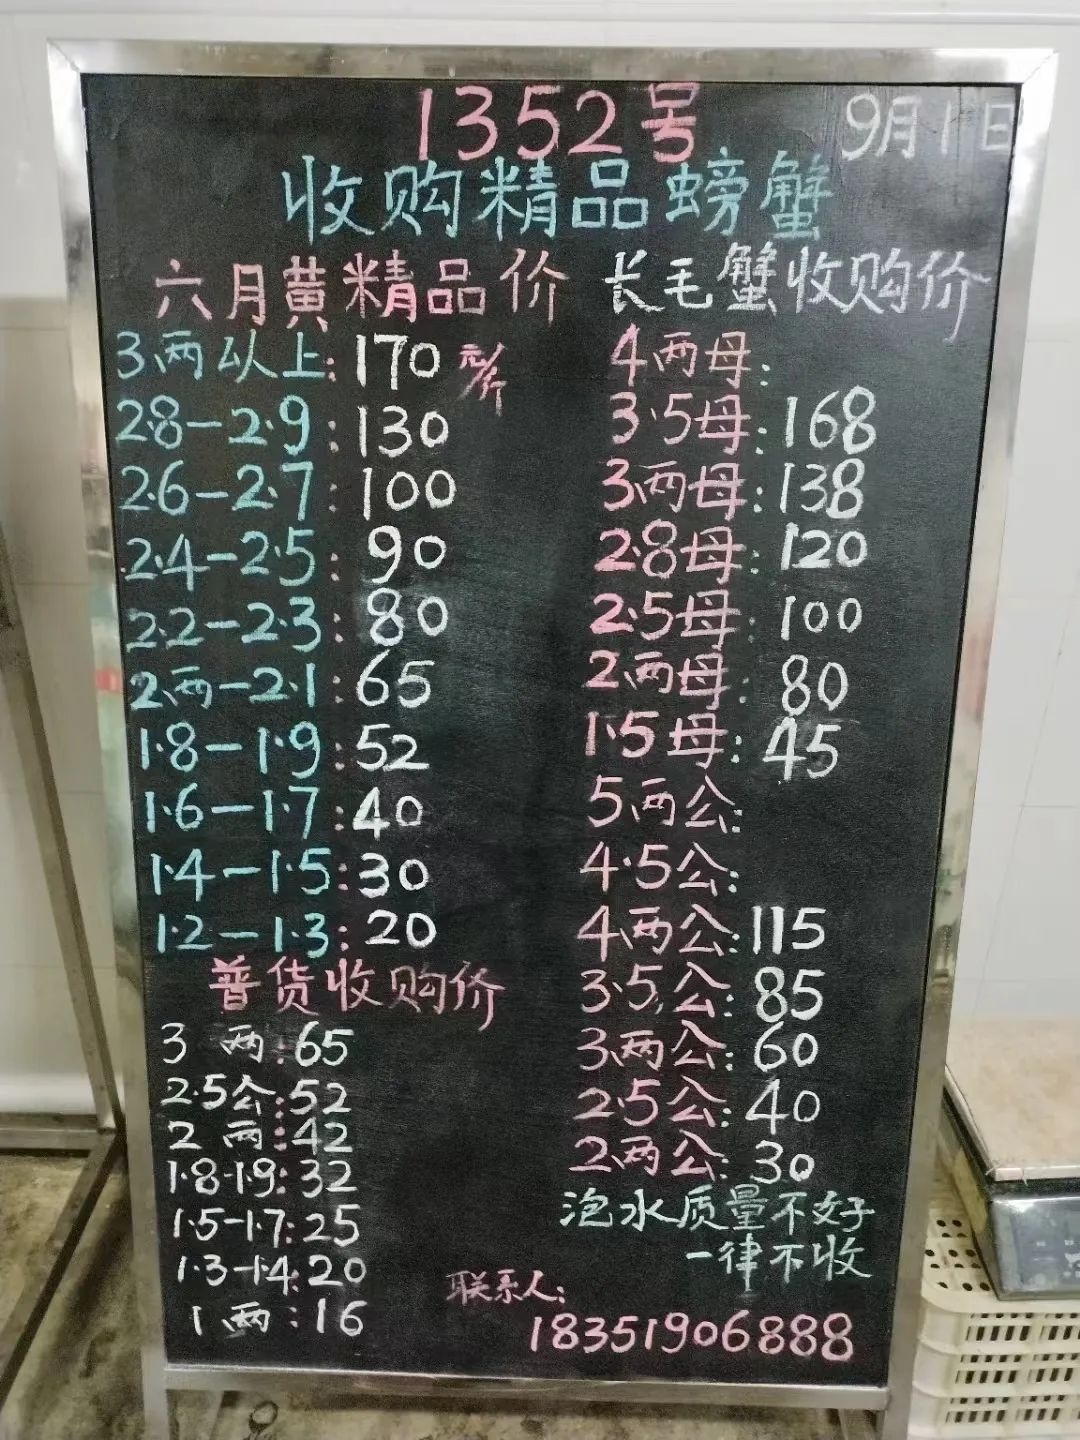 1352号
9月1日
收购精品螃蟹
六月黄精品价
3两以上:170元/斤
2.8-2.9:130
2.6-2.7:100
2.4-2.5:90
2.2-2.3:80
2两-2.1:65
1.8-1.9:52
1.6-1.7:40
1.4-1.5:30
1.2-1.3:20
普货收购价
3两:65
2.5公:52
2两:42
1.8-1.9:32
1.5-1.7:25
1.3-1.4:20
1两:16
长毛蟹收购价
4两母:
3.5母:168
3两母:138
2.8母:120
2.5母:100
2两母:80
1.5母:45
5两公:
4.5公:
4两公:115
3.5公:85
3两公:60
2.5公:40
2两公:30
泡水质量不好
一律不收
联系人:
18351906888